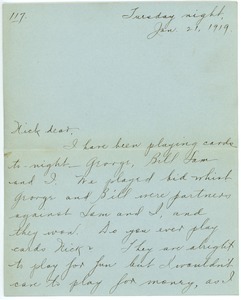 117.
Tuesday night,
Jan. 21, 1919
Kick dear,
I have been playing cards
to-night — George, Bill Sam
and I. We played bid whist
George and Bill were partners
against Sam and I, and
they won. Do you ever play
cards Kick? They are alright
to play for fun but I wouldn't
care to play for money, as I